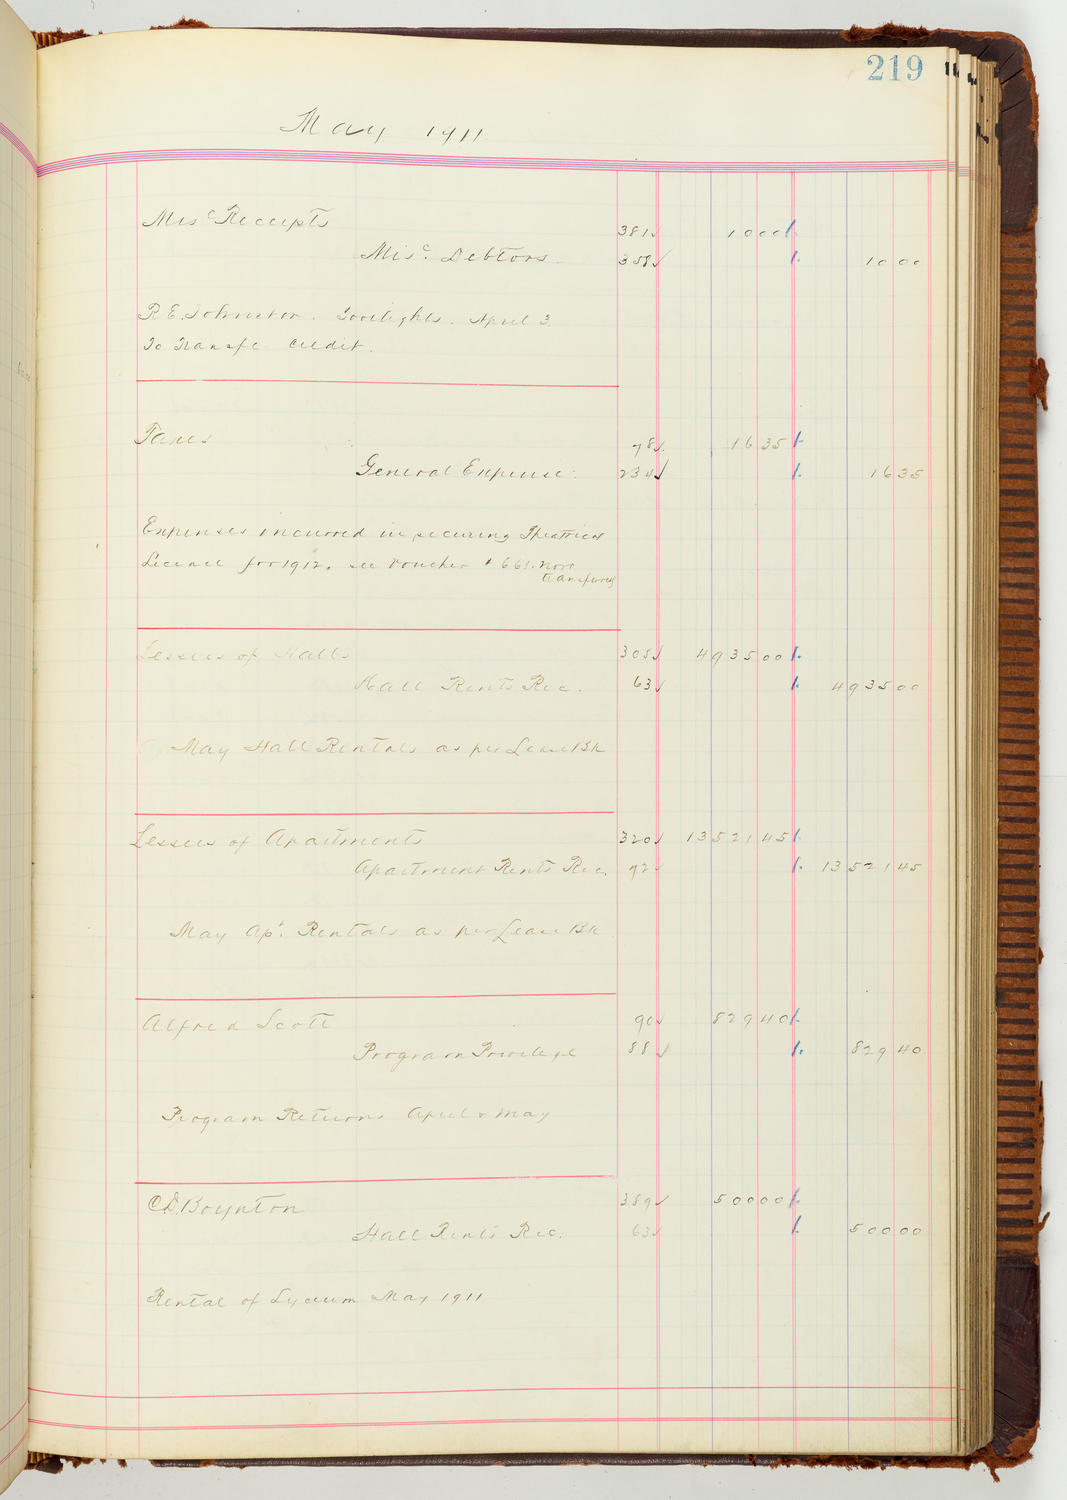 219
May 1911
Misc Receipts 381 1000
Misc. Debtors 358 1000
R.E. Johnston. Footlights. April 3.
To Transfe Credit.
Taxes 78 1635
General Expense 234 1635
Expenses incurred in securing Theatrical
Licence for 1912. see Voucher # 661. now
transferred
Lessees of Halls 305 493500
Hall Rents Rec. 63 493500
May Hall Rentals as per Lease Bk
Lessees of Apartments 320 1352145
Apartment Rents Rec. 92 1352145
May Apt. Rentals as per Lease Bk
Alfred Scott 90 82940
Program Privilege 88 82940
Program Returns April & May
C.D. Boynton 389 50000
Hall Rents Rec. 63 50000
Rental of Lyceum May 1911